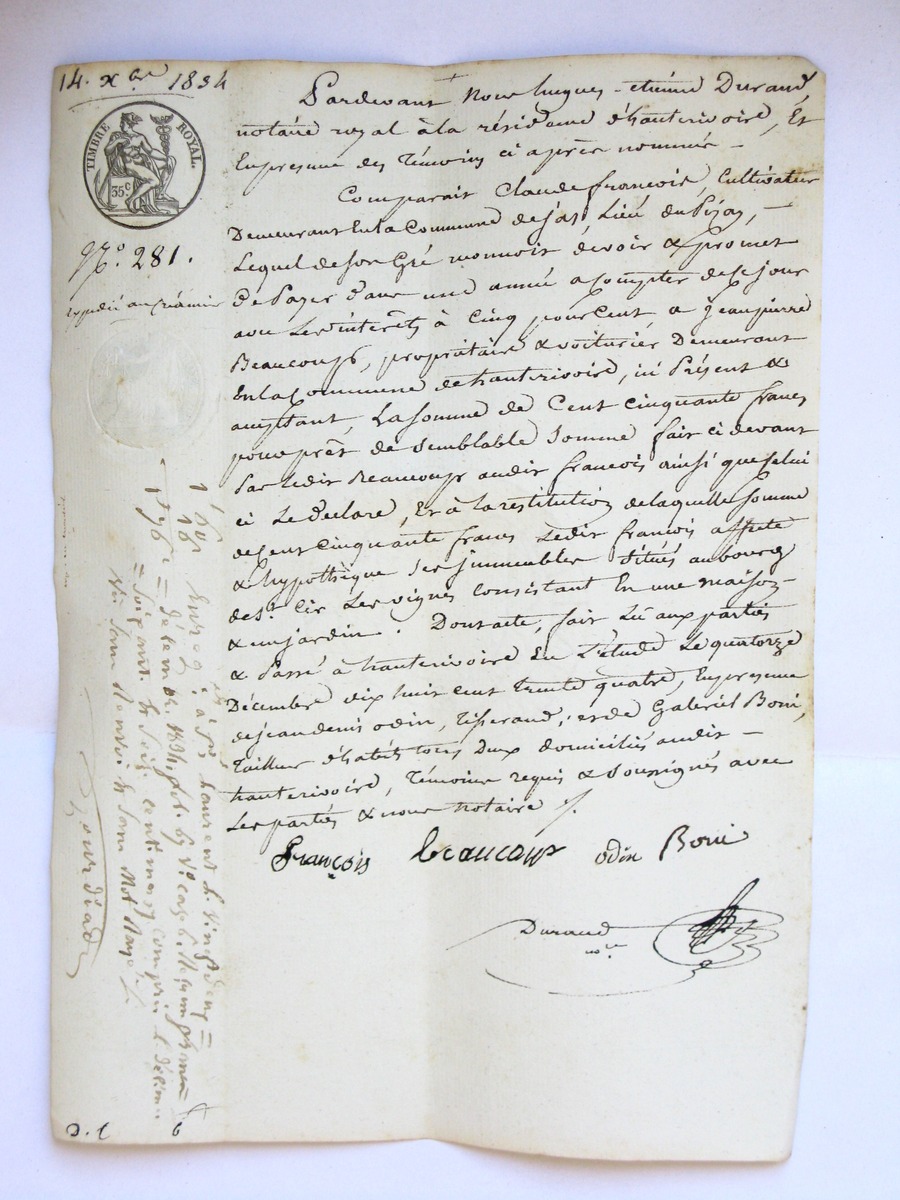 14. xbre 1834
TIMBRE ROYAL.
35c
N° 281.
expédié au créancier
Pardevant Nous hugues-etienne Durand,
notaire royal à la résidence d'hauterivoire, Et
En presence des Témoins ci après nommés —
Comparait Claude françois, Cultivateur
Demeurant En la Commune de jas, Lieu du Pizay, —
Lequel de son Gré reconnoit devoir & promet
de Payer dans une année a Compter de ce jour
avec Les interêts à Cinq pour Cent a jean pierre
Beaucoup, propriétaire & voiturier Demeurant
En la Commune de hauterivoire, ici Présent &
acceptant, La somme de Cent cinquante francs
pour prêt de semblable somme fait ci devant
Par Ledit Beaucoup audit francois ainsi que celui
ci Le declare, Et à la restitution de laquelle somme
de Cent cinquante francs Ledit francois affecte
& hypothèque ses immeubles situés au bourg
de st. Cir Les vignes Consistant En une maison
& un jardin. Dont acte, fait Lu aux parties
& Passé à hauterivoire En L'étude Le quatorze
Décembre dix huit cent trente quatre, En presence
de jean denis odin, Tisserand, et de Gabriel Boni,
Tailleur d'habits tous deux domiciliés audit —
hauterivoire, Témoins requis & soussignés avec
Les parties & nous notaire /.
François Beaucoup odin Boni
Durand
nore
Enreg. à St Laurent le vingt deux =
décembre 1834, fol. 67
= soixante seize centimes compris le décime
D. C 6